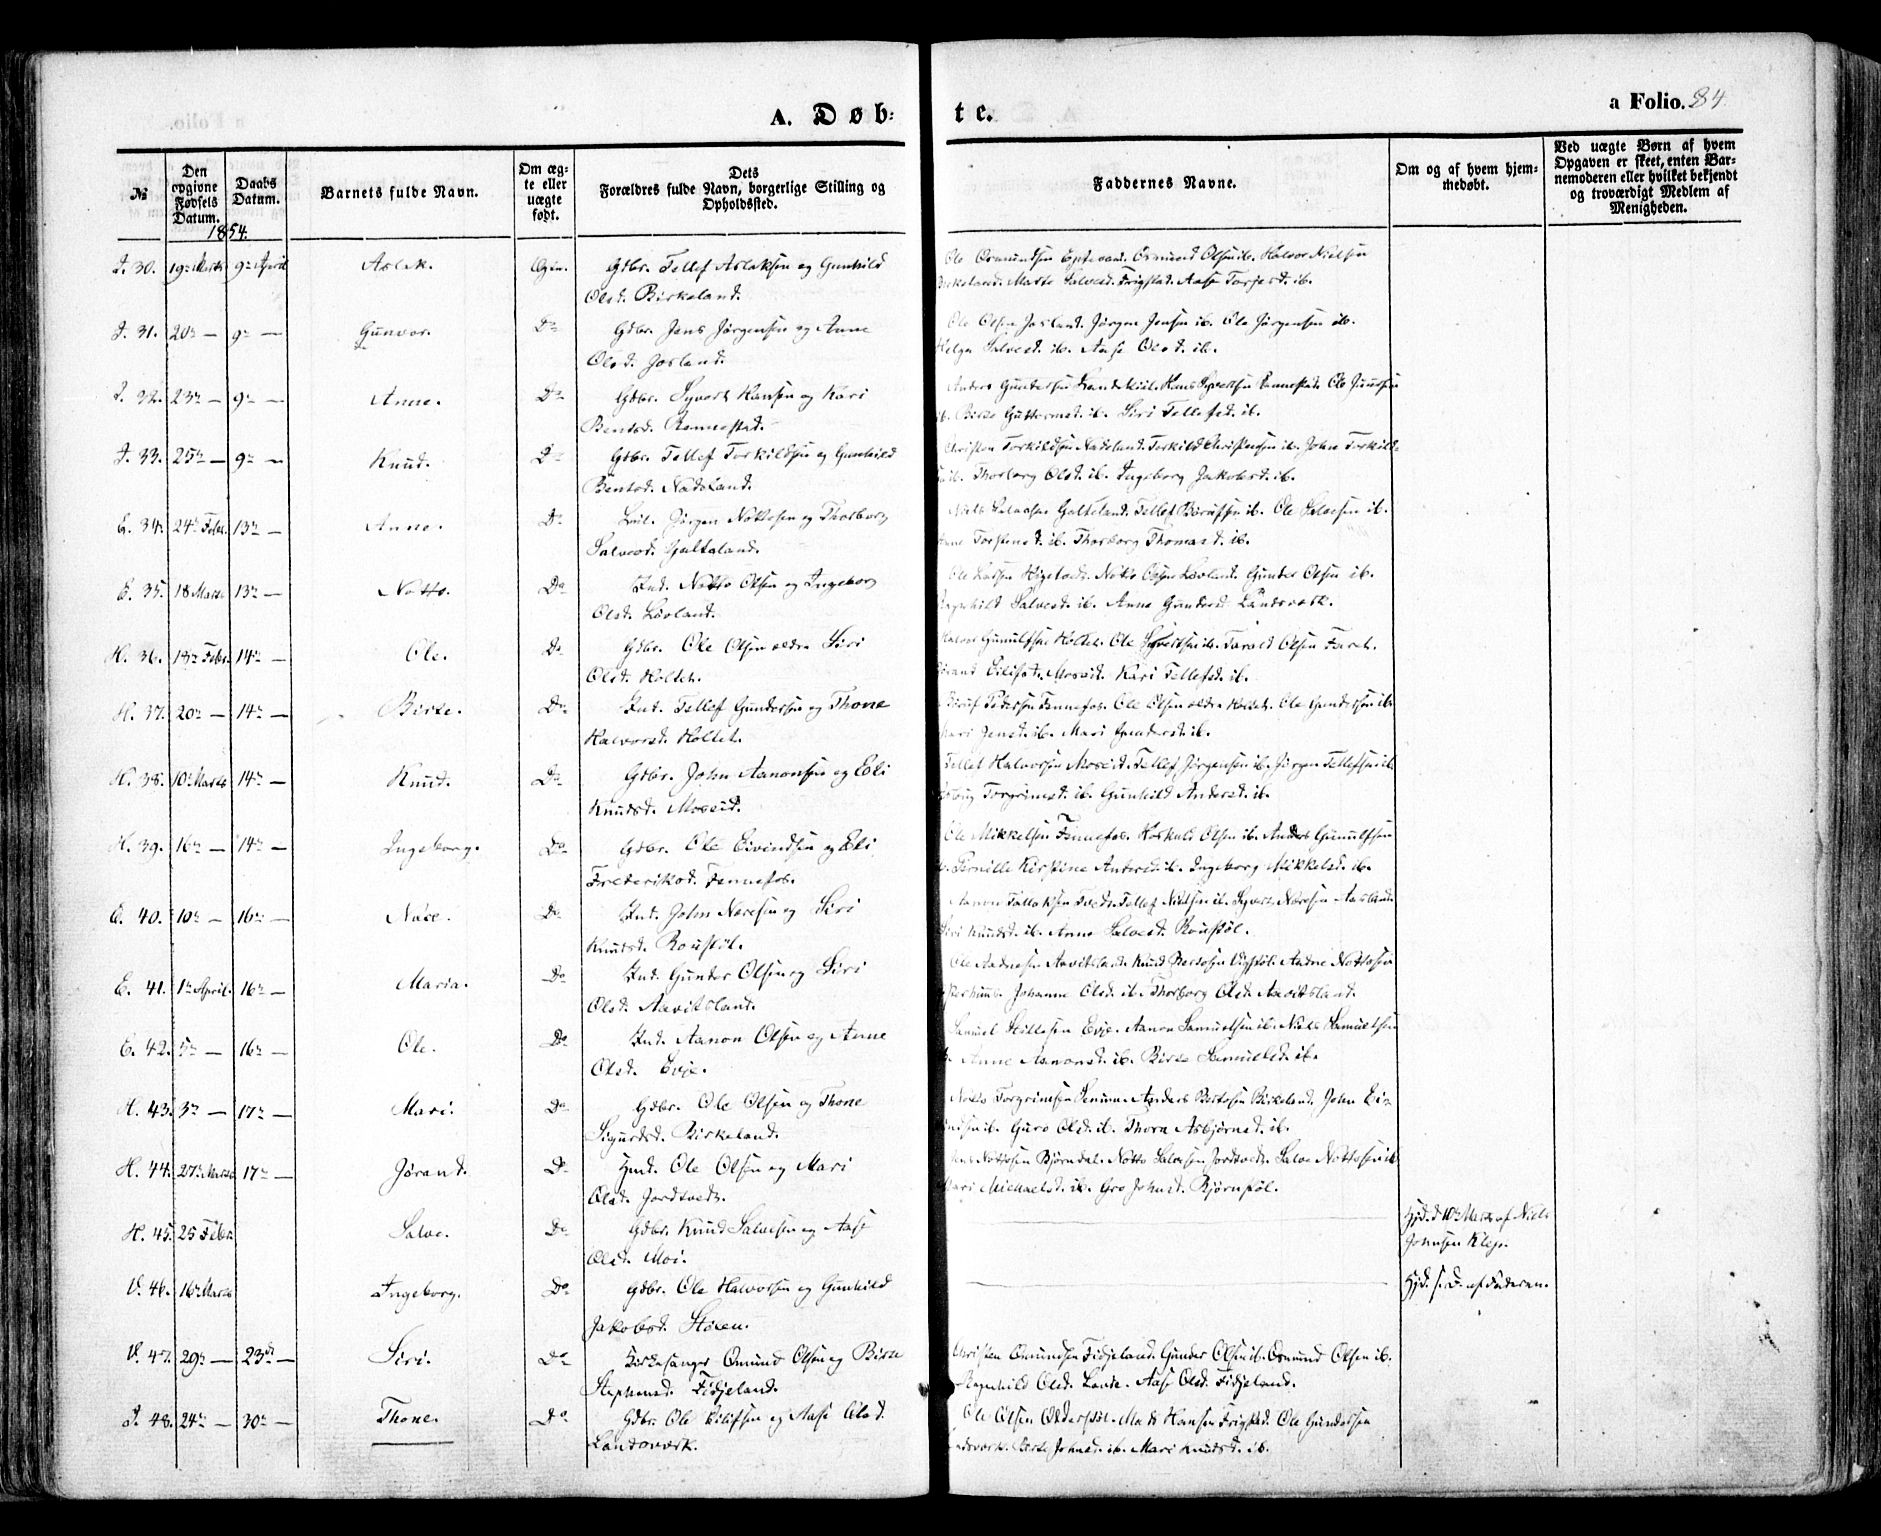 A. Døb=
te.
a Folio. 84.
№
Den opgivne Fødsels Datum.
Daabs Datum.
Barnets fulde Navn.
Om ægte eller uægte født.
Dets
Forældres fulde Navn, borgerlige Stilling og
Opholdssted.
Faddernes Navne.
Om og af hvem hjemmedøbt.
Ved uægte Børn af hvem
Opgaven er skeet, enten Bar-
nemoderen eller hvilket bekjendt
og troværdigt Medlem af
Menigheden.
1854.
I. 30. 19de Marts 9de April Aslak. Ægte. Gdbr. Tellef Aslaksen og Gunhild
Olsd. Birkeland.
Ole Osmundsen Osmund Olsen ib. Halvor Nielsen
Birkeland. Marte Salvesd. Frigstad. Aase Torjesd. ib.
I. 31. 20de — 9de — Gunvor. Do Gdbr. Jens Jørgensen og Anne
Olsd. Josland.
Ole Olsen Josland. Jørgen Jensen ib. Ole Jørgensen ib.
Helga Salvesd. ib. Aase Olsd. ib.
I. 32. 23de — 9de — Anne. Do Gdbr. Syvert Hansen og Kari
Bentsd. Rannestad.
Anders Gundersen Hans Syvertsen Rannestad. Ole
ib. Birte Guttormsd. ib. Siri Tellefsd. ib.
I. 33. 25de — 9de — Knud. Do Gdbr. Tellef Torkildsen og Gunhild
Bentsd. Nadeland.
Christen Torkildsen Nadeland. Torkild Christensen ib. John Torkild-
sen ib. Thorborg Olsd. ib. Ingeborg Jakobsd. ib.
E. 34. 24de Febr. 13de — Anne. Do Leil. Jørgen Nottosen og Thorborg
Salvesd. Galteland.
Niels Salvesen Galteland. Tellef ib. Ole Salvesen ib.
Anne Torstensd. ib. Thorborg Thomasd. ib.
E. 35. 18 Marts 13de — Notto. Do Ind. Notto Olsen og Ingeborg
Olsd. Løvland.
Ole Larsen Notto Olsen Løvland. Gunder Olsen ib.
Ragnhild Salvesd. ib. Anne Gundersd. Landsværk.
H. 36. 18de Febr. 14de — Ole. Do Gdbr. Ole Olsen ældre Siri
Olsd. Holtet.
Halvor Gunulfsen Holtet. Ole Syvertsen ib. Tarald Olsen
Eilifsd. Moseid. Kari Tellefsd. ib.
H. 37. 20de — 14de — Birte. Do Ind. Tellef Gundersen og Thone
Halvorsd. Holtet.
Pedersen Fennefos. Ole Olsen ældre Holtet. Ole Gundersen ib.
Kari Jensd. ib. Mari Gundersd. ib.
H. 38. 10de Marts 14de — Knud. Do Gdbr. John Aanonsen og Eli
Knudsd. Moseid.
Tellef Halvorsen Moseid. Tellef Jørgensen ib. Jørgen Tellefsen ib.
Torgrimsd. ib. Gunhild Andersd. ib.
H. 39. 16de — 14de — Ingeborg. Do Gdbr. Ole Eivindsen og Eli
Frederiksd. Fennefos.
Ole Mikkelsen Fennefos. Høskuld Olsen ib. Anders Gunulfsen
ib. Pernille Kirstine Andersd. ib. Ingeborg Mikkelsd. ib.
E. 40. 10de — 16de — Nære. Do Ind. John Næresen og Siri
Knudsd. Roustøl.
Aanon Tellef Nielsen ib. Syvert Næresen Aasland.
Siri Knudsd. ib. Anne Salvesd. Roustøl.
E. 41. 1ste April. 16de — Maria. Do Ind. Gunder Olsen og Siri
Olsd. Aavitsland.
Ole Aadnesen Aavitsland. Knud Aadne Nottosen
Johanne Olsd. ib. Thorborg Olsd. Aavitsland.
E. 42. 5te — 16de — Ole. Do Ind. Aanon Olsen og Anne
Olsd. Evje.
Samuel Evje. Aanon Samuelsen ib. Niels Samuelsen
ib. Anne Aanonsd. ib. Birte Samuelsd. ib.
H. 43. 3de — 17de — Mari. Do Gdbr. Ole Olsen og Thone
Sigurdsd. Birkeland.
Notto Torgrimsen Senum. Anders Bertosen Birkeland. John Ei-
vindsen ib. Guro Olsd. ib. Thora Asbjørnsd. ib.
H. 44. 27de Marts 17de — Jørand. Do Ind. Ole Olsen og Mari
Olsd. Jordtvedt.
Nottosen Bjørndal. Notto Salvesen Jordtvedt. Salve Nottosen ib.
Mari Michaelsd. ib. Gro Johnsd. Bjørnstøl.
H. 45. 25 Febr. Salve. Do Gdbr. Knud Salvesen og Aase
Olsd. Moi.
Hjd. d 10de Marts af Niels
Johnsen Klep.
V. 46. 16de Marts Ingeborg. Do Gdbr. Ole Halvorsen og Gunhild
Jakobsd. Støien.
Hjd. s. D. af Faderen.
V. 47. 29de — 23de — Siri. Do Kirkesanger Omund Olsen og Birte
Stephensd. Fidjeland.
Christen Omundsen Fidjeland. Gunder Olsen ib. Osmund Olsen ib.
Ragnhild Olsd. Aase Olsd. Fidjeland.
I. 48. 24de — 30de — Thone. Do Gdbr. Ole Eilifsen og Aase Olsd.
Landsværk.
Ole Olsen Mads Hansen Frigstad. Ole Gundersen
Landsværk. Berte Johnsd. ib. Mari Knudsd. ib.